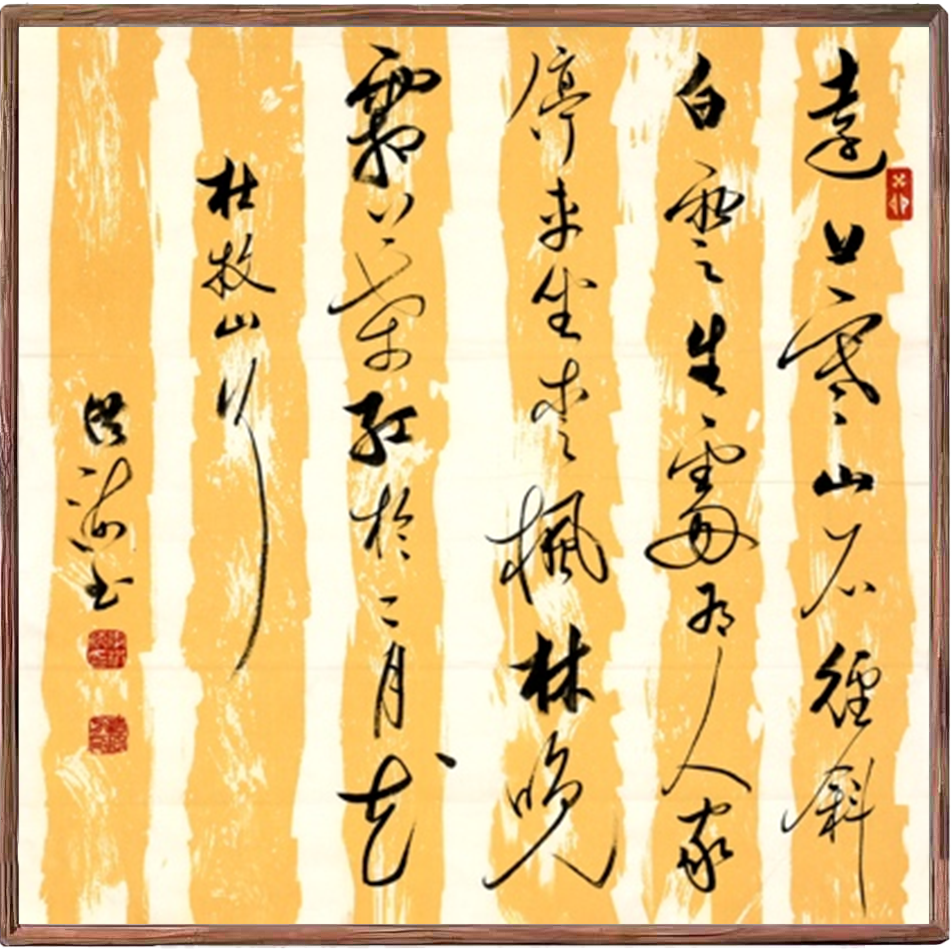 遠上寒山石徑斜
白雲生處有人家
停車坐愛楓林晚
霜葉紅於二月花
杜牧山行
书